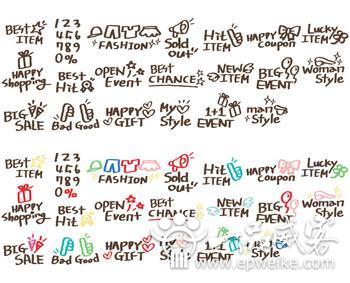 BEST ITEM
1 2 3
4 5 6
7 8 9
0 %
FASHION
Sold out!
Hit ITEM
HAPPY Coupon
Lucky ITEM
HAPPY Shopping
Best Hit
OPEN Event
BEST CHANCE
NEW ITEM
BIG EVENT
Woman Style
BIG SALE
Bad Good
HAPPY GIFT
My Style
1+1 EVENT
man Style
BEST ITEM
1 2 3
4 5 6
7 8 9
0 %
FASHION
Sold out!
Hit ITEM
HAPPY Coupon
Lucky ITEM
HAPPY Shopping
Best Hit
OPEN Event
BEST CHANCE
NEW ITEM
BIG EVENT
Woman Style
BIG SALE
Bad Good
HAPPY GIFT
1+1
Style
www.epweike.com